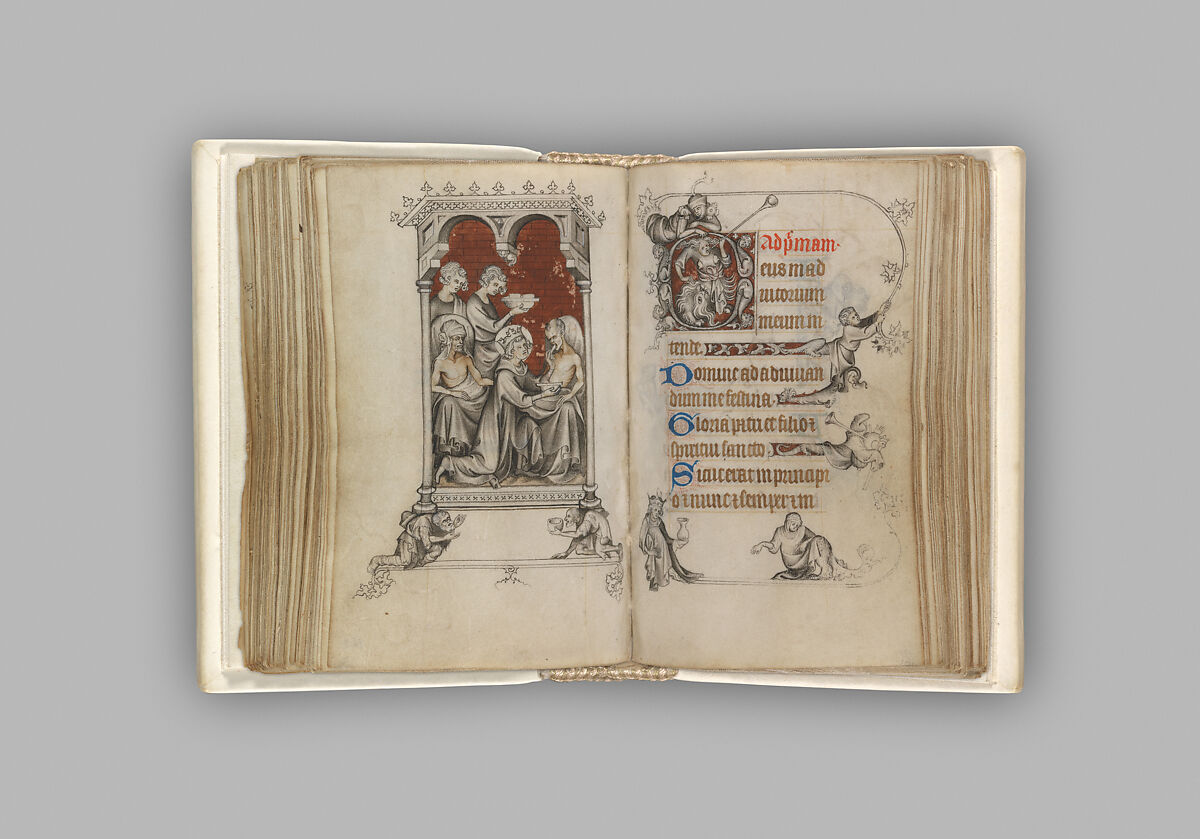 Ad p̄mam.
Deus in ad
iutorium
meum in
tende.
Domine ad adiuuan
dum me festina.
Gloria patri et filio ⁊
spiritui sancto.
Sicut erat in principi
o ⁊ nunc ⁊ semper ⁊ in